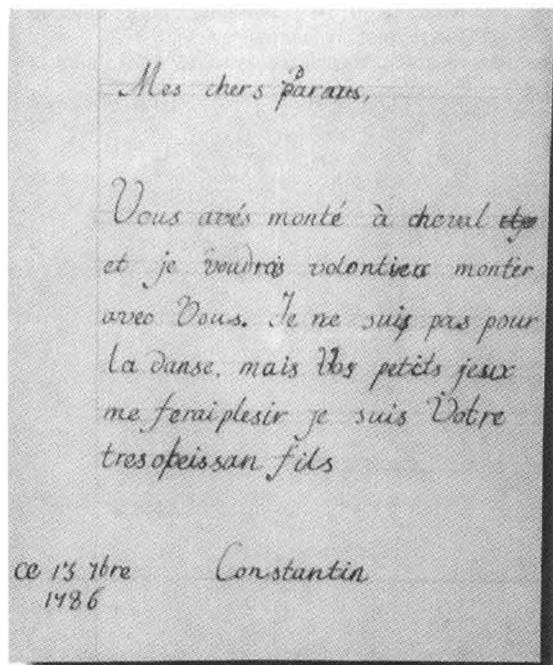 Mes chers parans,
Vous avés monté à cheval
et je voudrais volontiers monter
avec Vous. Je ne suis pas pour
la danse, mais Vos petits jeux
me feraiplesir je suis Votre
tresopeissan fils
ce 13 7bre Constantin
1786